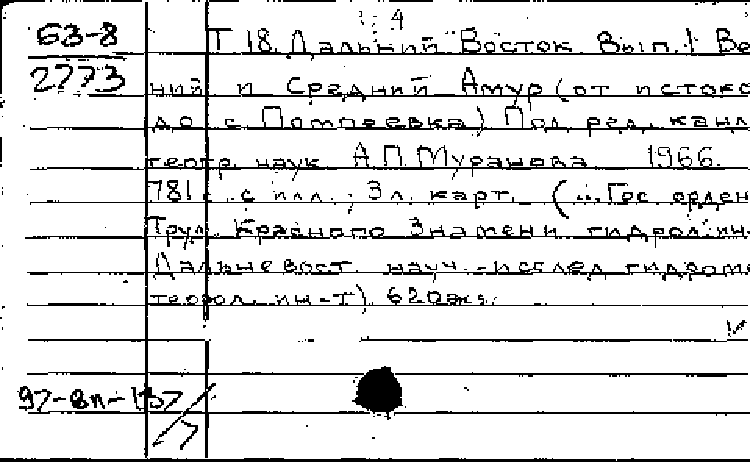 4
63-8
2773
Т 18. Дальний Восток Вып. 1 Ве
ний и Средний Амур (от истоко
до с Помпеевка) Под. ред. канд
геогр. наук А.П. Муранова 1966.
781 с. с илл.; 3 л. карт. (... Гос. орден
Труд. Красного Знамени гидрол. ин-
Дальневост. науч.-исслед гидроме
теорол. ин-т) 620экз.
97-8п-137/7